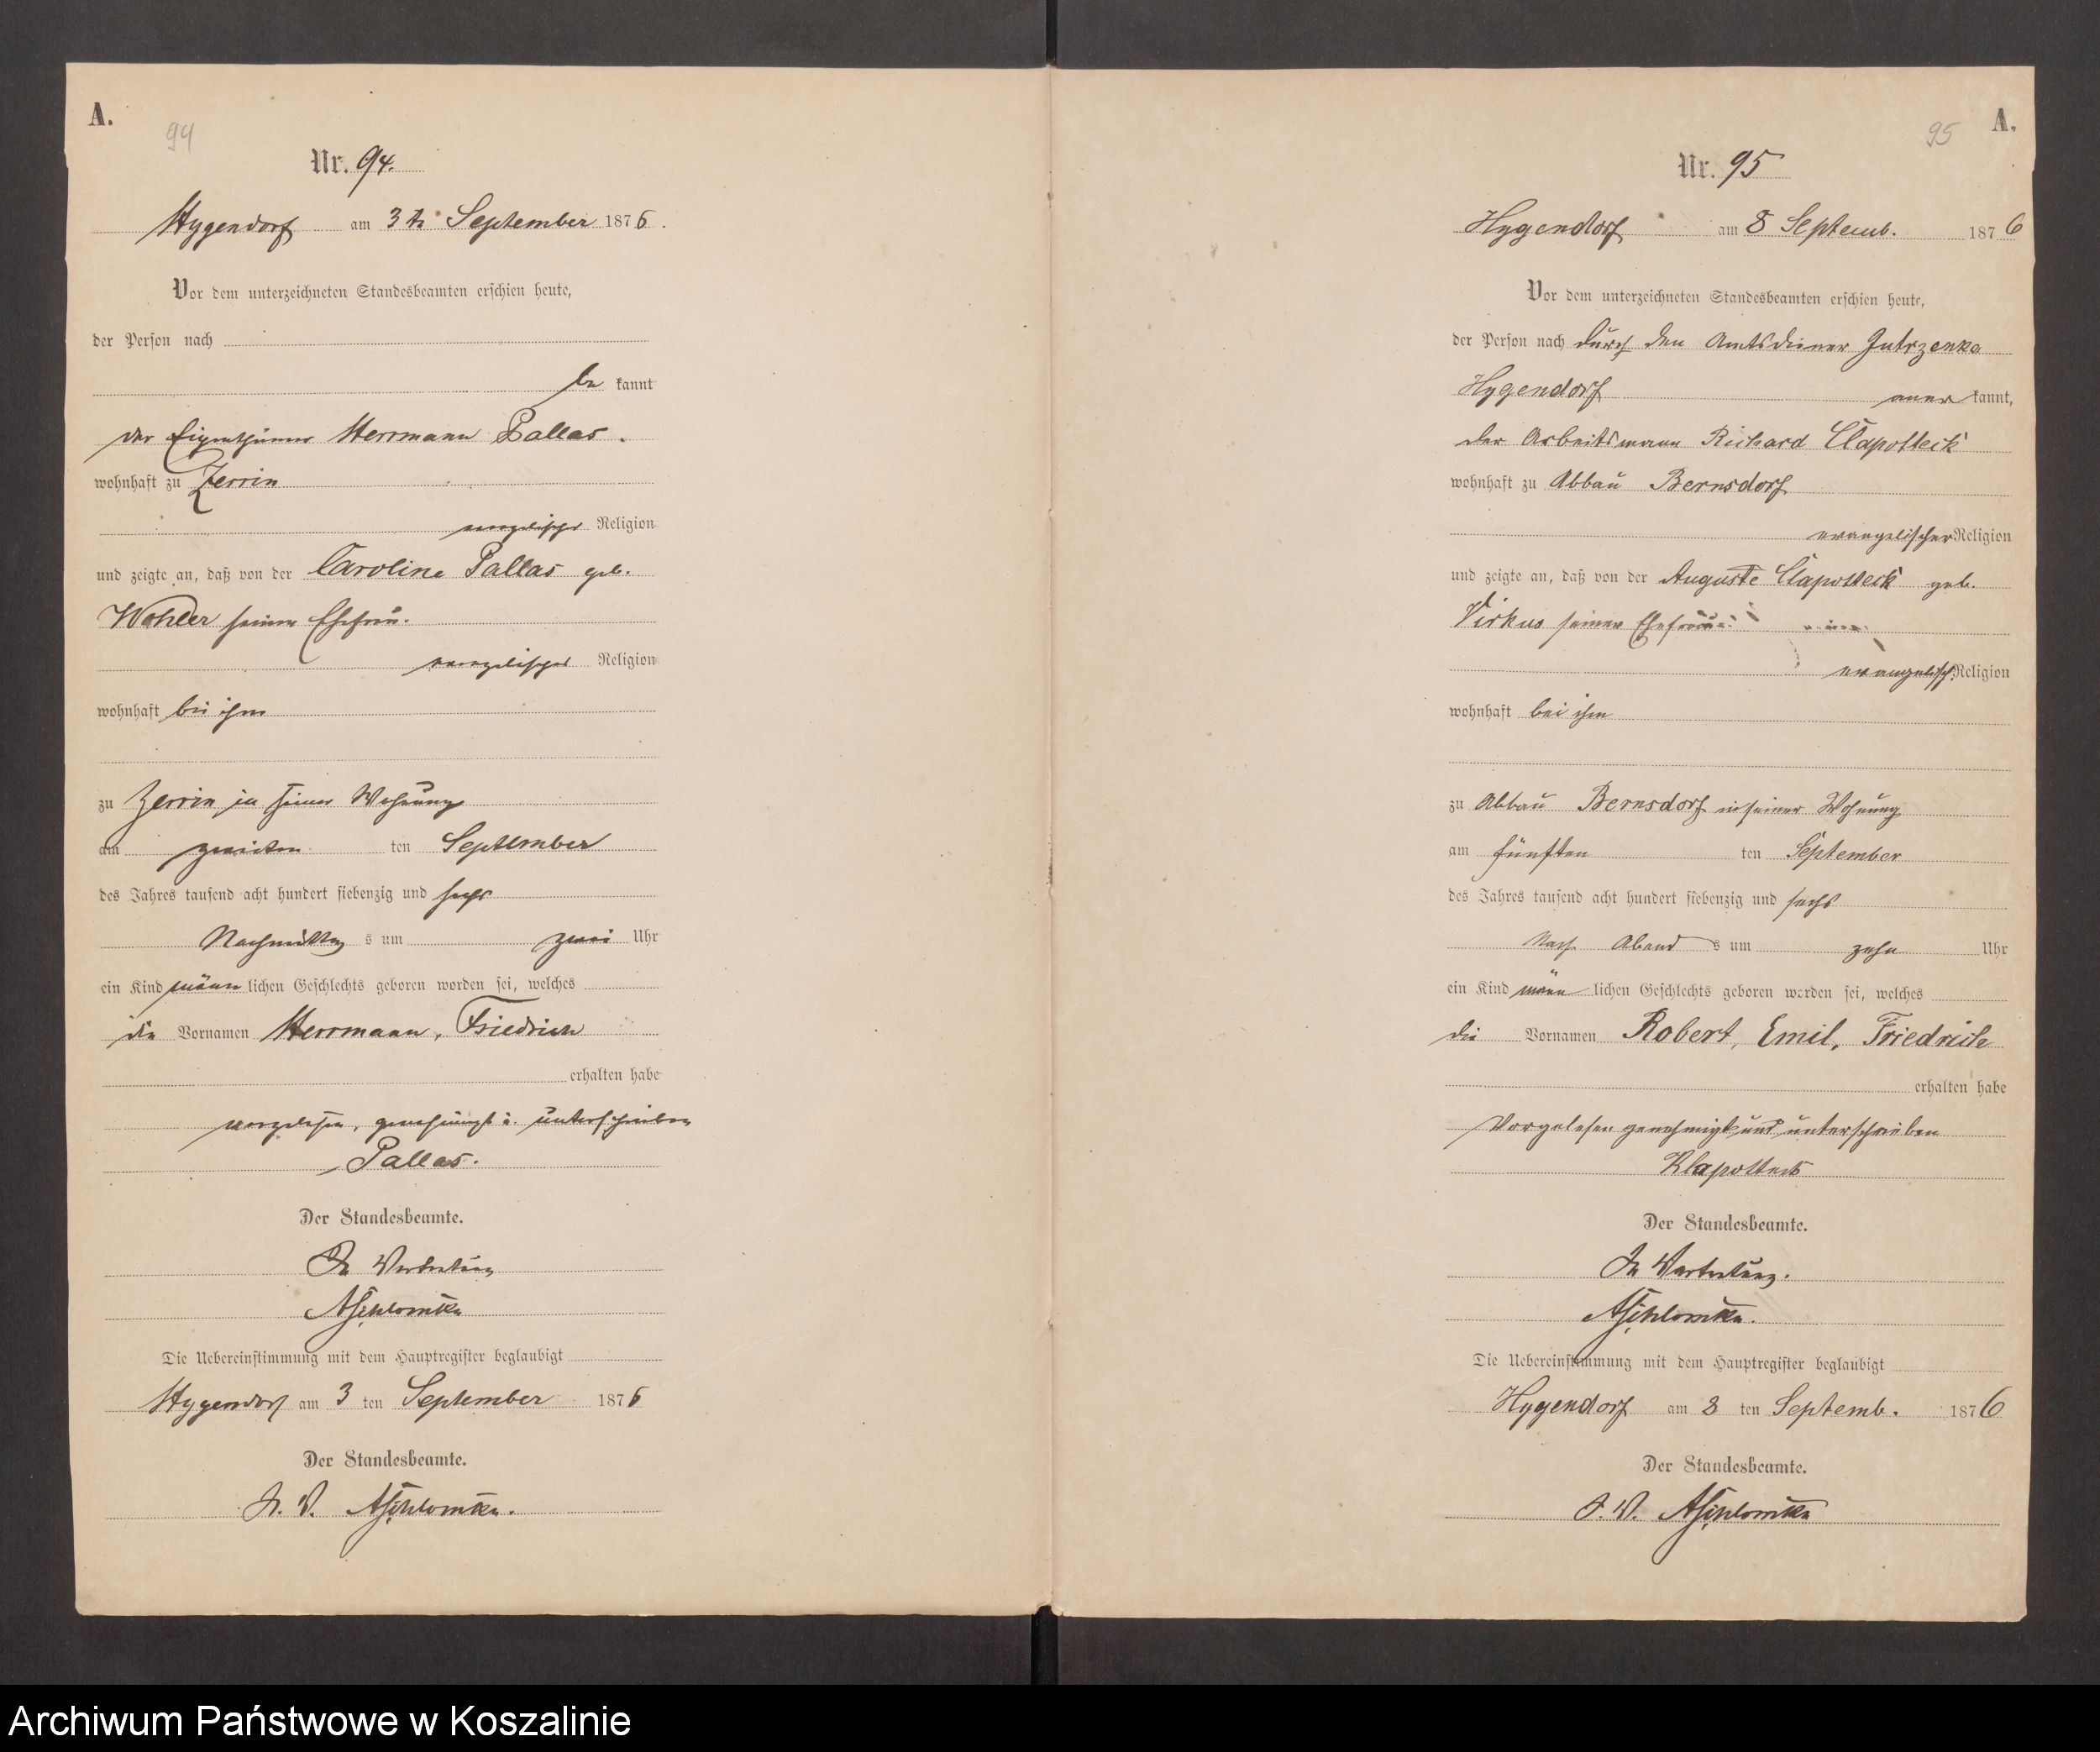 A.
94
Nr. 94.
Hygendorf am 3 tn September 1876.
Vor dem unterzeichneten Standesbeamten erschien heute,
der Person nach
be kannt
der Eigenthümer Herrmann Pallas.
wohnhaft zu Zerrin
evangelischer Religion
und zeigte an, daß von der Caroline Pallas geb.
seiner Ehefrau.
evangelischer Religion
wohnhaft bei ihm
zu Zerrin in seiner Wohnung
am zweiten ten September
des Jahres tausend acht hundert siebenzig und sechs
Nachmittag s um zwei Uhr
ein Kind männ lichen Geschlechts geboren worden sei, welches
die Vornamen Herrmann, Friedrich
erhalten habe
vorgelesen, genehmigt u. unterschrieben
Pallas.
Der Standesbeamte.
In Vertretung
Die Uebereinstimmung mit dem Hauptregister beglaubigt
Hygendorf am 3 ten September 1876
Der Standesbeamte.
I. V.
A.
95
Nr. 95
Hygendorf am 8 Septemb. 1876
Vor dem unterzeichneten Standesbeamten erschien heute,
der Person nach durch den Amtsdiener Gutrzenka
Hygendorf aner kannt,
der Arbeitsmann Richard Clapotteck
wohnhaft zu Abbau Bernsdorf
evangelischer Religion
und zeigte an, daß von der Auguste Clapotteck geb.
Virkus seiner Ehefrau
evangelisch. Religion
wohnhaft bei ihm
zu Abbau Bernsdorf in seiner Wohnung
am fünften ten September
des Jahres tausend acht hundert siebenzig und sechs
Nach Abend s um zehn Uhr
ein Kind männ lichen Geschlechts geboren worden sei, welches
die Vornamen Robert, Emil, Friedrich
erhalten habe
Vorgelesen genehmigt und unterschrieben
Klapotteck
Der Standesbeamte.
In Vertretung.
Die Uebereinstimmung mit dem Hauptregister beglaubigt
Hygendorf am 8 ten Septemb. 1876
Der Standesbeamte.
I. V.
Archiwum Państwowe w Koszalinie